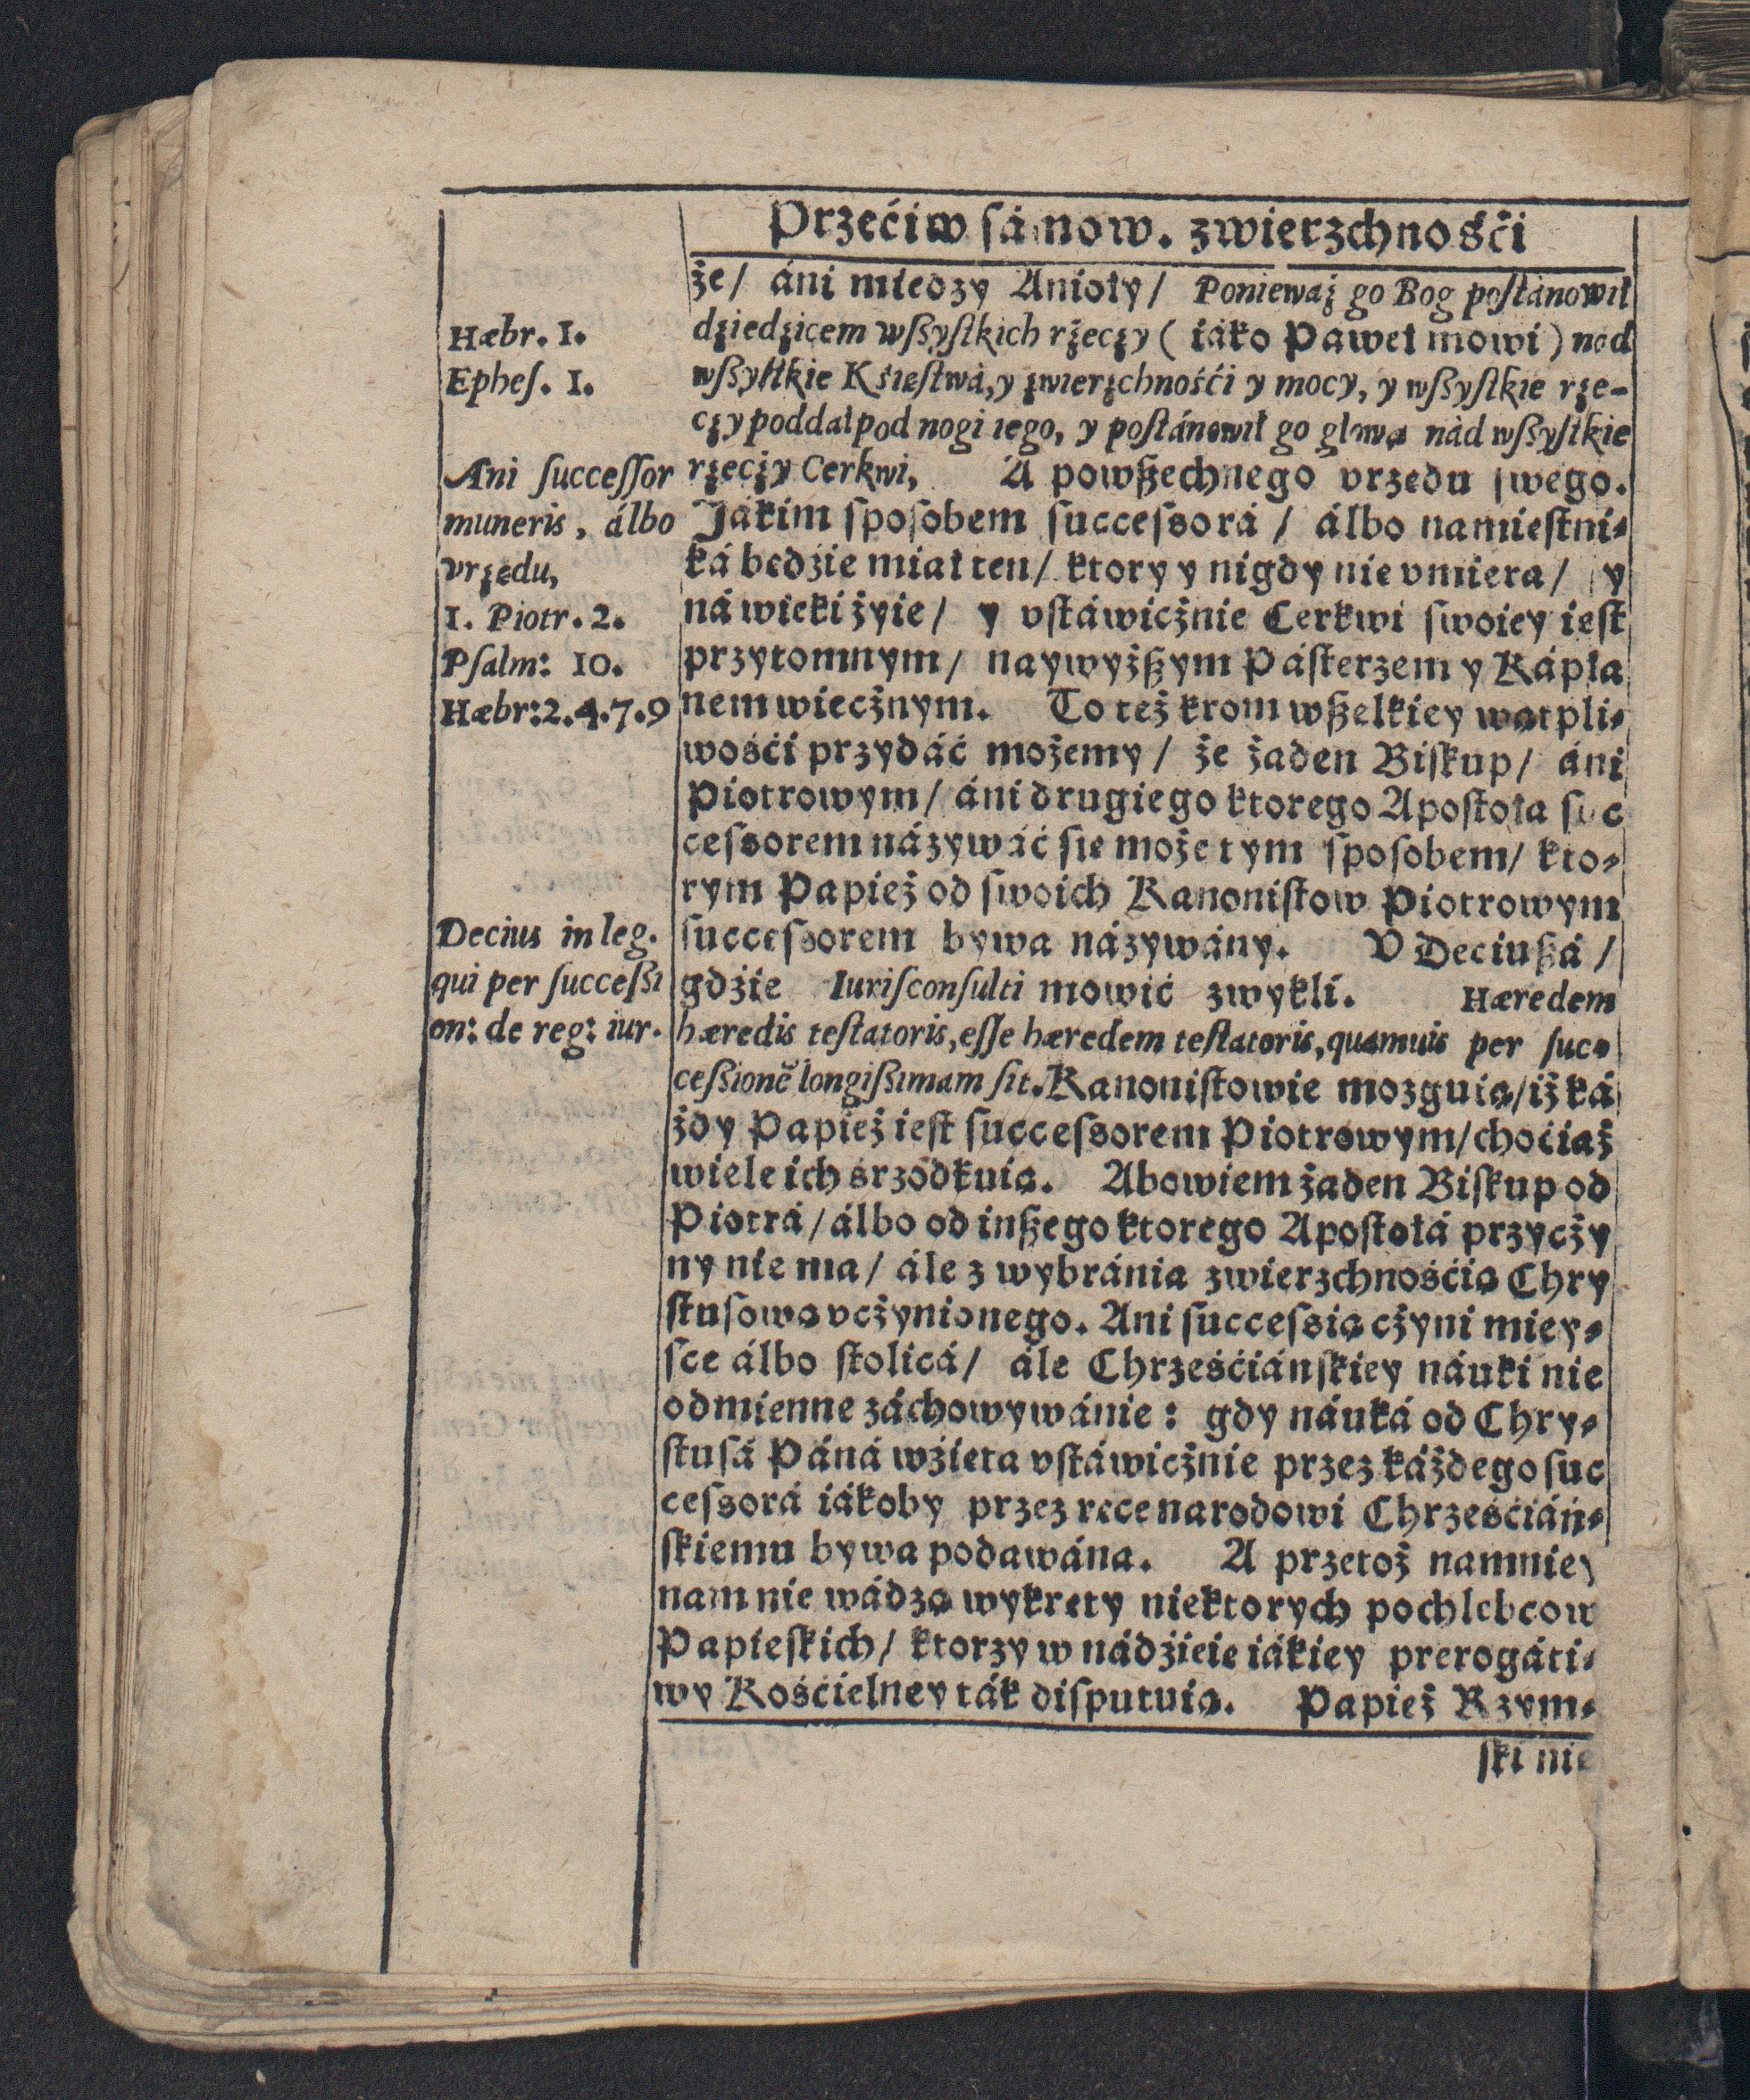 Przećiw sámow. zwierzchnośći
że/ áni miedzy Anioły/ Poniewaz go Bog postánowił
Hæbr. 1.
dziedzicem wßyſtkich rzeczy (iáko Páweł mowi) nád
Epheſ. 1.
wßyſtkie Kſięſtwá, y zwierzchnośći y mocy, y wßyſtkie rze-
czy poddał pod nogi iego, y poſtánowił go głową nád wßyſtkie
Ani ſucceſſor
muneris, álbo
vrzędu,
1. Piotr. 2.
Pſalm: 10.
Hæbr: 2. 4. 7. 9
rzeczy Cerkwi, A powßechnego vrzędu ſwego.
Jákim ſpoſobem ſucceſsorá / álbo namieſtni-
ká będźie miał ten/ ktory y nigdy nie vmiera/ y
ná wieki żyie/ y vſtáwicżnie Cerkwi ſwoiey ieſt
przytomnym/ naywyżßym Páſterzem y Kápła
nem wiecżnym. To też krom wßelkiey wątpli-
wośći przydáć możemy/ że żaden Biſkup/ áni
Piotrowym/ áni drugiego ktorego Apoſtoła ſuc
ceſsorem názywáć ſie może tym ſpoſobem/ kto-
rym Papież od ſwoich Kanoniſtow Piotrowym
Decius in leg.
qui per ſucceßi
on: de reg: iur.
ſucceſsorem bywa názywány. V Deciußá /
gdźie Iuriſconſulti mowić zwykli. Hæredem
hæredis teſtatoris, eſſe hæredem teſtatoris, quamuis per ſuc-
ceßionē longißimam ſit. Kanoniſtowie mozguią/ iż ká
żdy Papież ieſt ſucceſsorem Piotrowym/ choćiaż
wiele ich śrzodkuią. Abowiem żaden Biſkup od
Piotrá/ álbo od inßego ktorego Apoſtołá przycży
ny nie ma/ ále z wybránia zwierzchnośćią Chry
ſtuſową vcżynionego. Ani ſucceſsią cżyni miey-
ſce álbo ſtolicá/ ále Chrześćiánſkiey náuki nie
odmienne záchowywánie: gdy náuká od Chry-
ſtuſá Páná wźięta vſtáwicżnie przez káżdego ſuc
ceſsorá iákoby przez ręce narodowi Chrześćiáń-
ſkiemu bywa podawána. A przetoż namniey
nam nie wádzą wykręty niektorych pochlebcow
Papieſkich/ ktorzy w nádźieię iákiey prerogáti-
wy Kośćielney ták diſputuią. Papież Rzym-
ſki nie